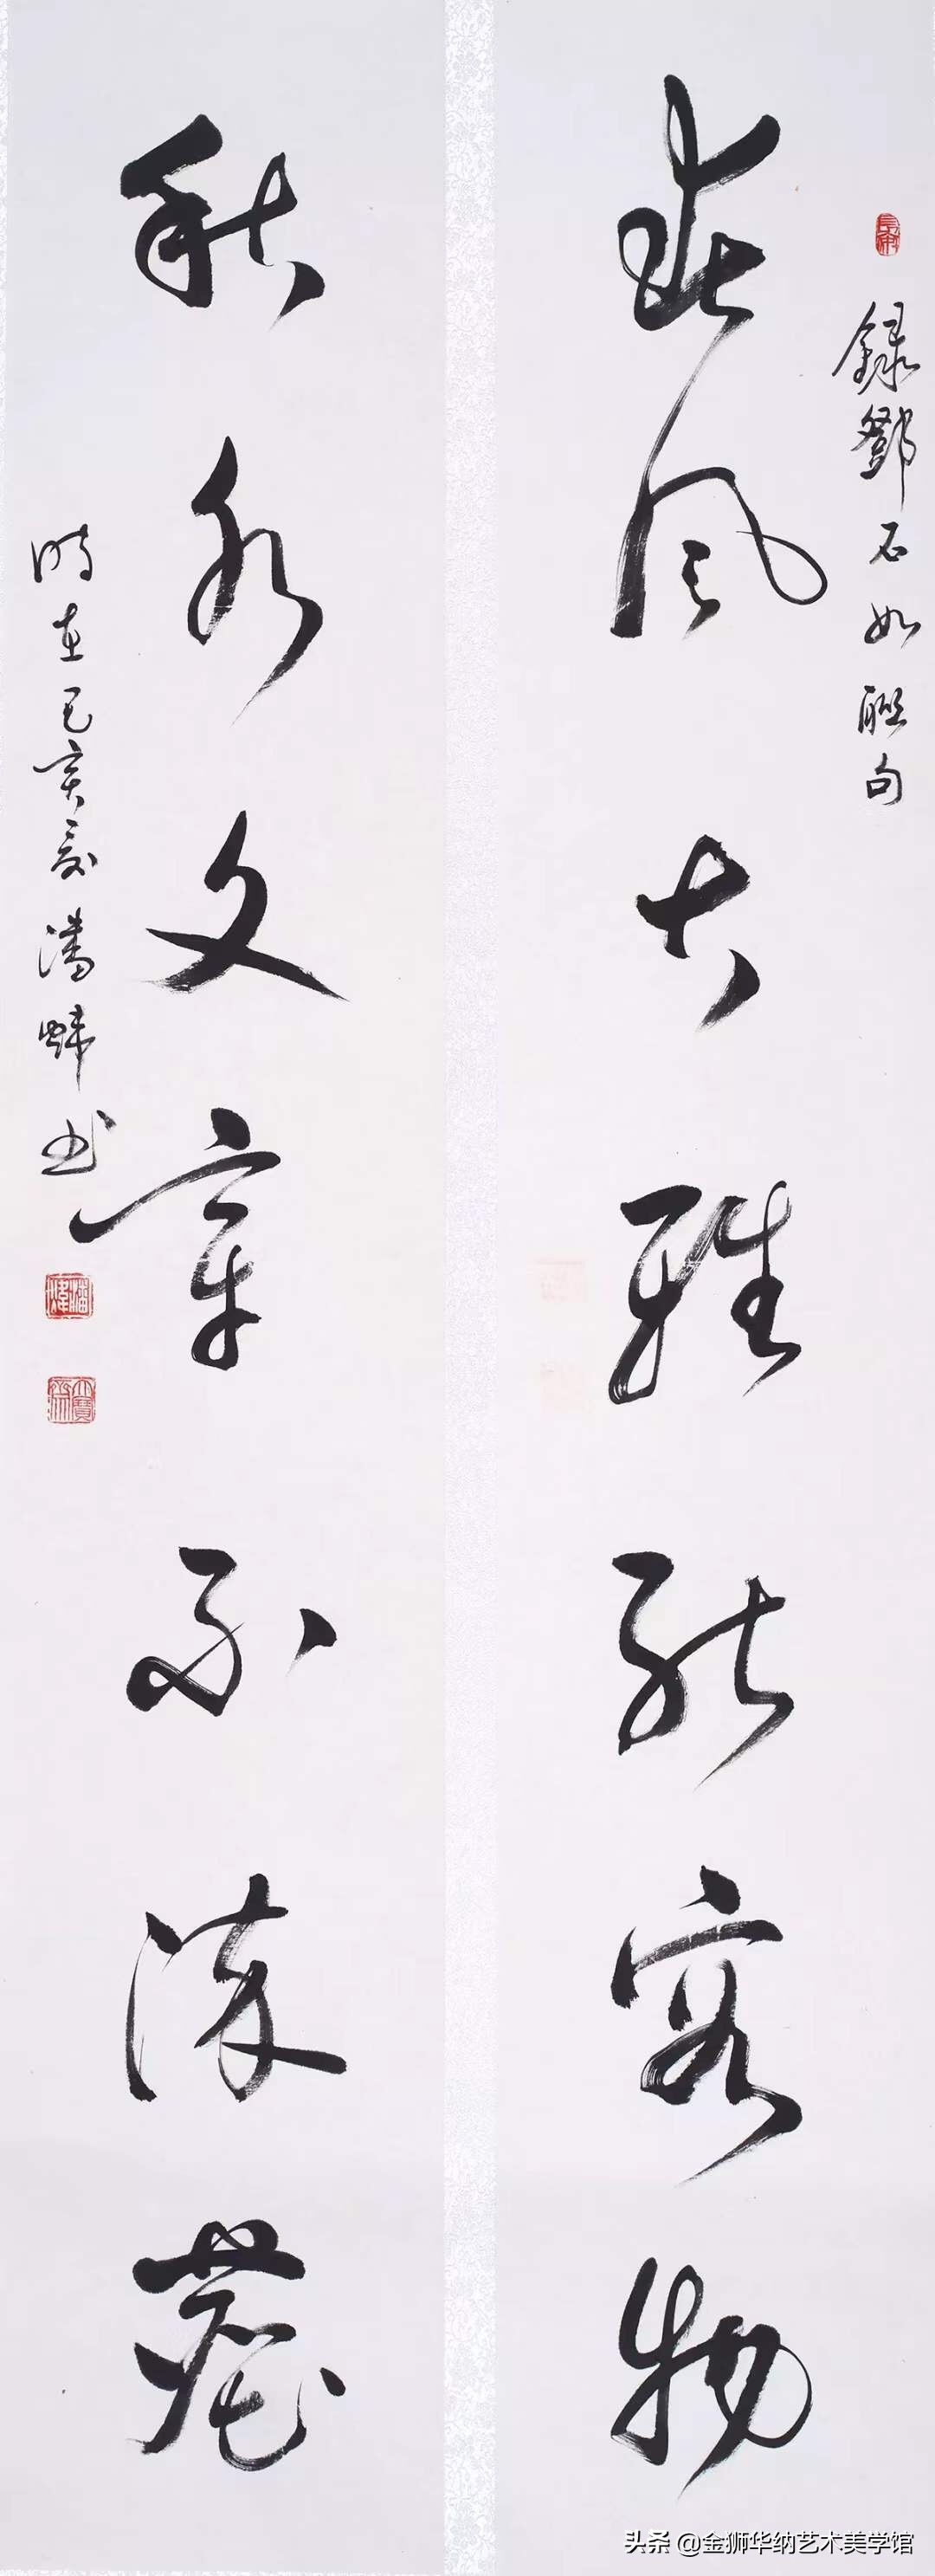 録鄧石如聯句
春风大雅能容物
秋水文章不染塵
時在己亥
潘
书
头条 @金狮华纳艺术美学馆